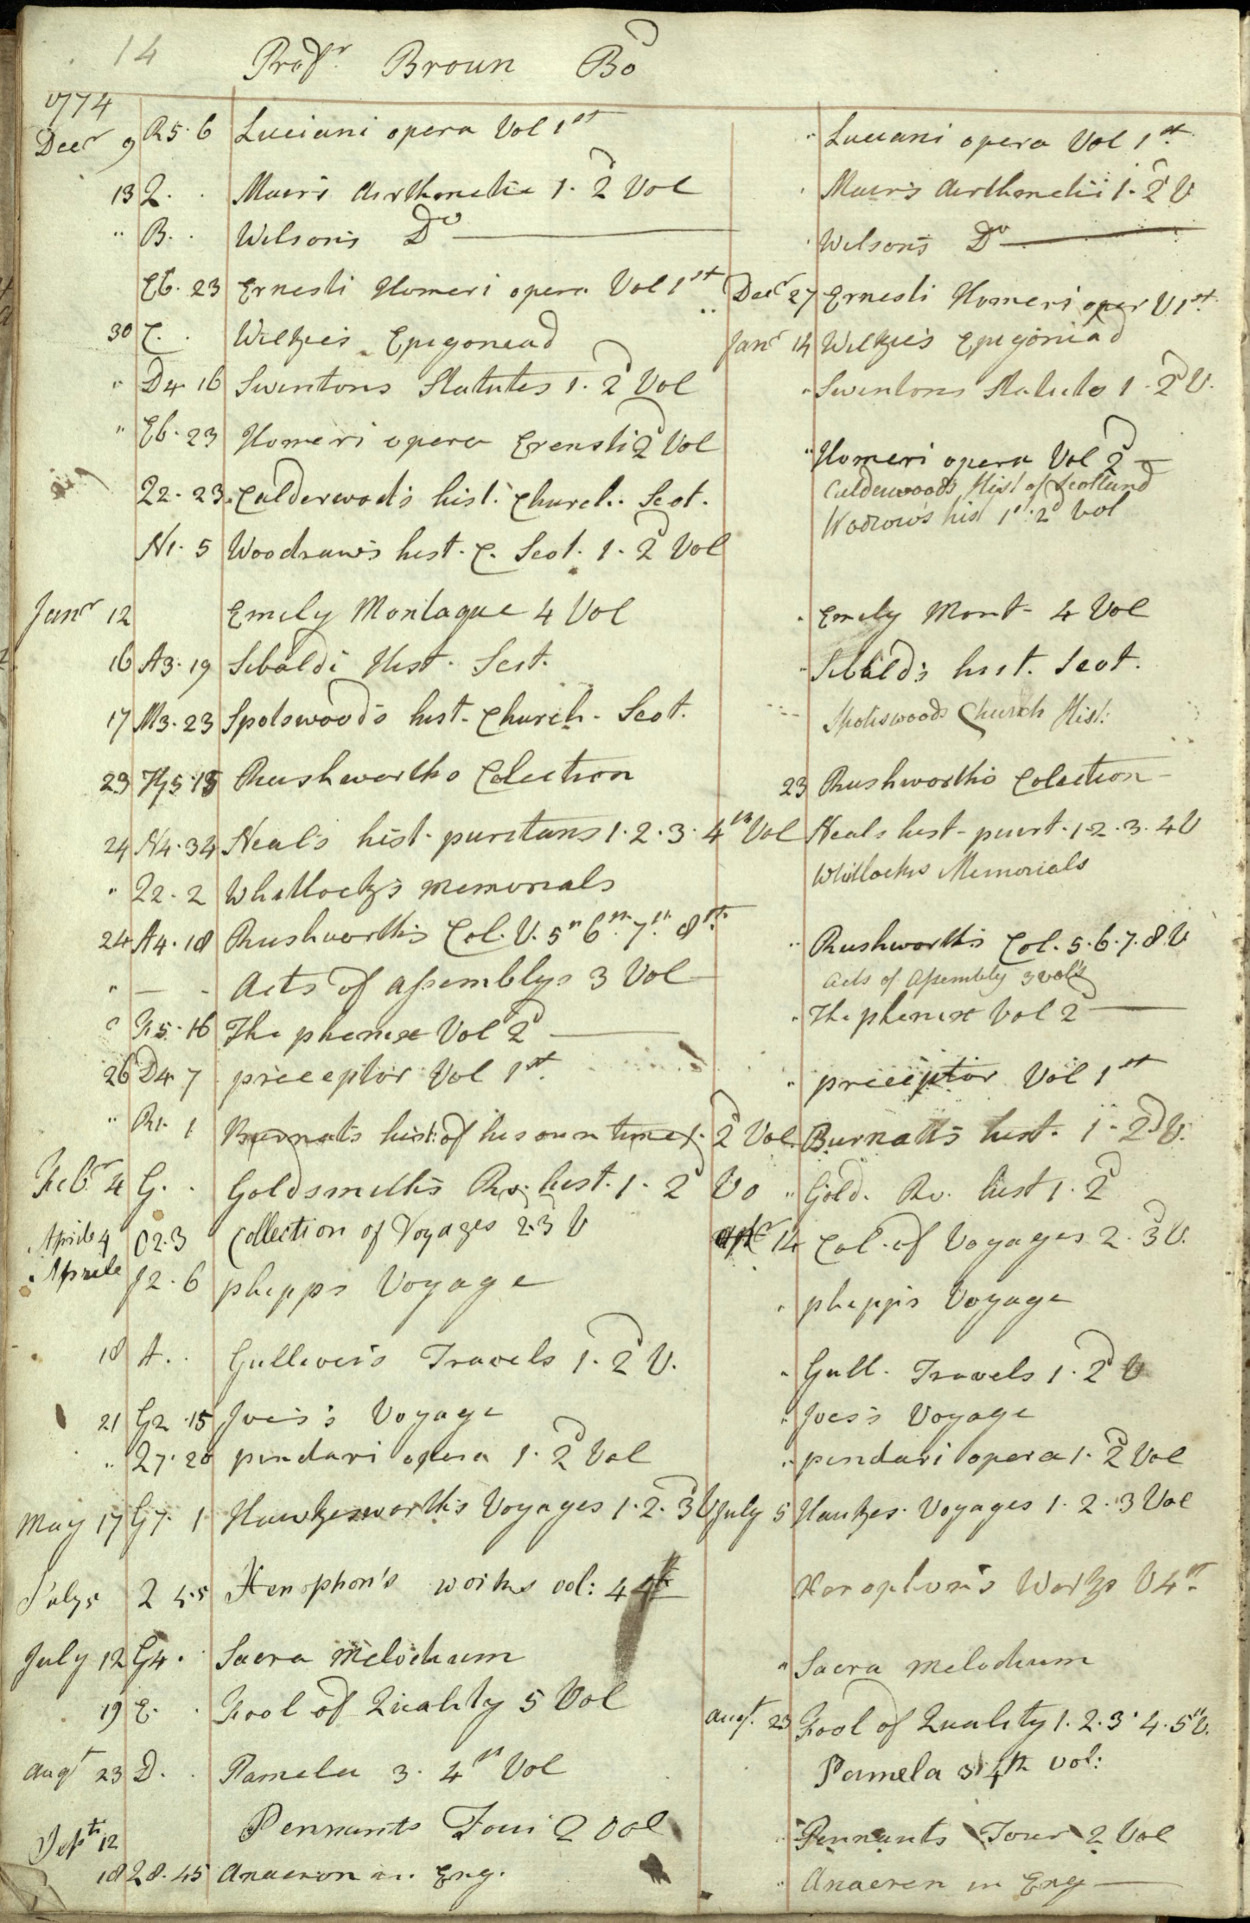 14 Profr Broun Bod
1774
Decr 9 R5.6 Luciani opera Vol 1st " Luciani opera Vol 1st
13 Q. . Mairs Airthmetic 1. 2d Vol Mairs Airthmetic 1. 2d V
" B. . Wilsons Do Wilsons Do
E6. 23 Ernesti Homeri opera Vol 1st Decr 27 Ernesti Homeri oper V 1st
30 C. . Wilkie's Epigoniad Janr 14 Wilkie's Epigoniad
" D4 16 Swintons Statutes 1. 2d Vol " Swintons Statutes 1. 2d V.
" E6. 23 Homeri opera Erensti 2d Vol " Homeri opera Vol 2d
Q2. 23 Calderwood's hist. Church. Scot. Calderwoods Hist of Scotland
N1. 5 Woodraw's hist. C. Scot. 1. 2d Vol Wodrow's hist 1st 2d vol
Janr 12 Emily Montague 4 Vol " Emily Mont- 4 Vol
16 A3. 19 Sibaldi Hist. Scot. " Sibald's hist. Scot.
17 M3. 23 Spotswood's hist. Church. Scot. Spotiswoods Church Hist:
23 H5. 15 Rushworths Colection 23 Rushworth's Colection
24 N4. 34 Neal's hist. puritans 1. 2. 3. 4th Vol Neals hist- purt. 1. 2. 3. 4 V
" Q2. 2 Whitlock's memorials Whitlocks Memorials
24 A4. 18 Rushworth's Col. V. 5th 6th 7th 8th " Rushworth's Col. 5. 6. 7. 8 V
" — - Acts of assemblys 3 Vol Acts of Assembly 3 vols
F5. 16 The phenix Vol 2d " The phenix Vol 2d
26 D4 7 preceptor Vol 1st " preceptor Vol 1st
" R1. 1 Burnat's hist: of his own times 1. 2d Vol. Burnatt's hist. 1. 2d V.
Febr 4 G. . Goldsmith's Ro. hist. 1. 2d Vo " Gold. Ro. hist 1. 2d
Aprile 4 O2.3 Collection of Voyages 2. 3 V apr 14 Col. of Voyages 2. 3d V.
Aprile J2. 6 phipps Voyage " phipps Voyage
18 A. . Gulliver's Travels 1. 2d V. " Gull. Travels 1. 2d V
21 G2. 15 Ives's Voyage " Ives's Voyage
" Q7. 20 pindari opera 1. 2d Vol " pindari opera 1. 2d Vol
May 17 G7. 1 Hawkesworth's Voyages 1. 2. 3d V July 5 Hawkes. Voyages 1. 2. 3 Vol
July 5 Q 5.5 Xenophon's works vol: 4 Xenophon's Works V 4th
July 12 G4. . Sacra Melodium " Sacra melodium
19 E. . Fool of Quality 5 Vol augt. 23 Fool of Quality 1. 2. 3. 4. 5th V.
augt 23 D. . Pamela 3. 4th Vol Pamela 3. 4th vol:
Septr 12 Pennants Tour 2 Vol " Pennants Tour 2 Vol
18 Q8. 45 Anacron in Eng. " Anacren in Eng